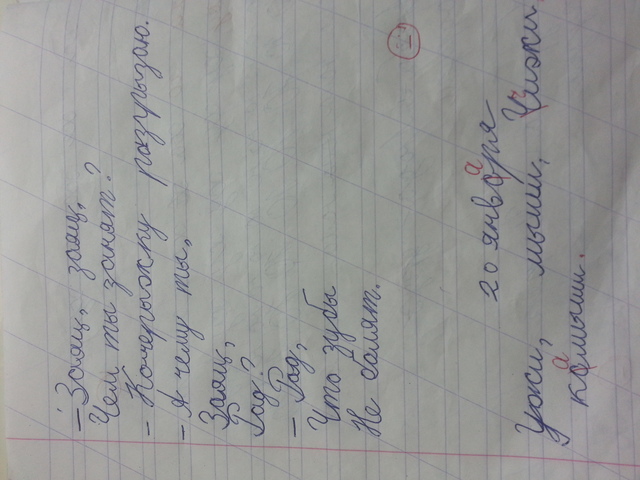 – Заяц, заяц,
Чем ты занят?
– Кочерыжку разгрызаю.
– А чему ты,
Заяц,
Рад?
– Рад,
Что зубы
Не болят.
20 января
Ужи, мыши, Чижи,
камыши.